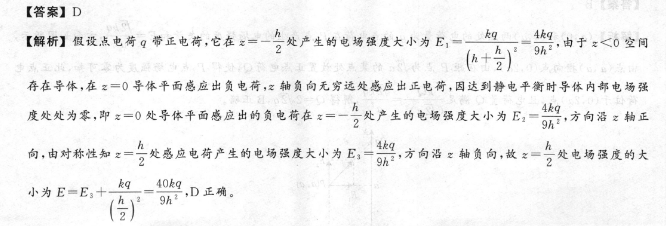 【答案】D
【解析】假设点电荷 q 带正电荷,它在 z=-\frac{h}{2}处产生的电场强度大小为 E₁=\frac{kq}{(h+\frac{h}{2})^2}=\frac{4kq}{9h^2},由于 z<0 空间
存在导体,在 z=0 导体平面感应出负电荷,z 轴负向无穷远处感应出正电荷,因达到静电平衡时导体内部电场强
度处处为零,即 z=0 处导体平面感应出的负电荷在 z=-\frac{h}{2}处产生的电场强度大小为 E₂=\frac{4kq}{9h^2},方向沿 z 轴正
向,由对称性知 z=\frac{h}{2}处感应电荷产生的电场强度大小为 E₃=\frac{4kq}{9h^2},方向沿 z 轴负向,故 z=\frac{h}{2}处电场强度的大
小为 E=E₃+\frac{kq}{(\frac{h}{2})^2}=\frac{40kq}{9h^2},D 正确。